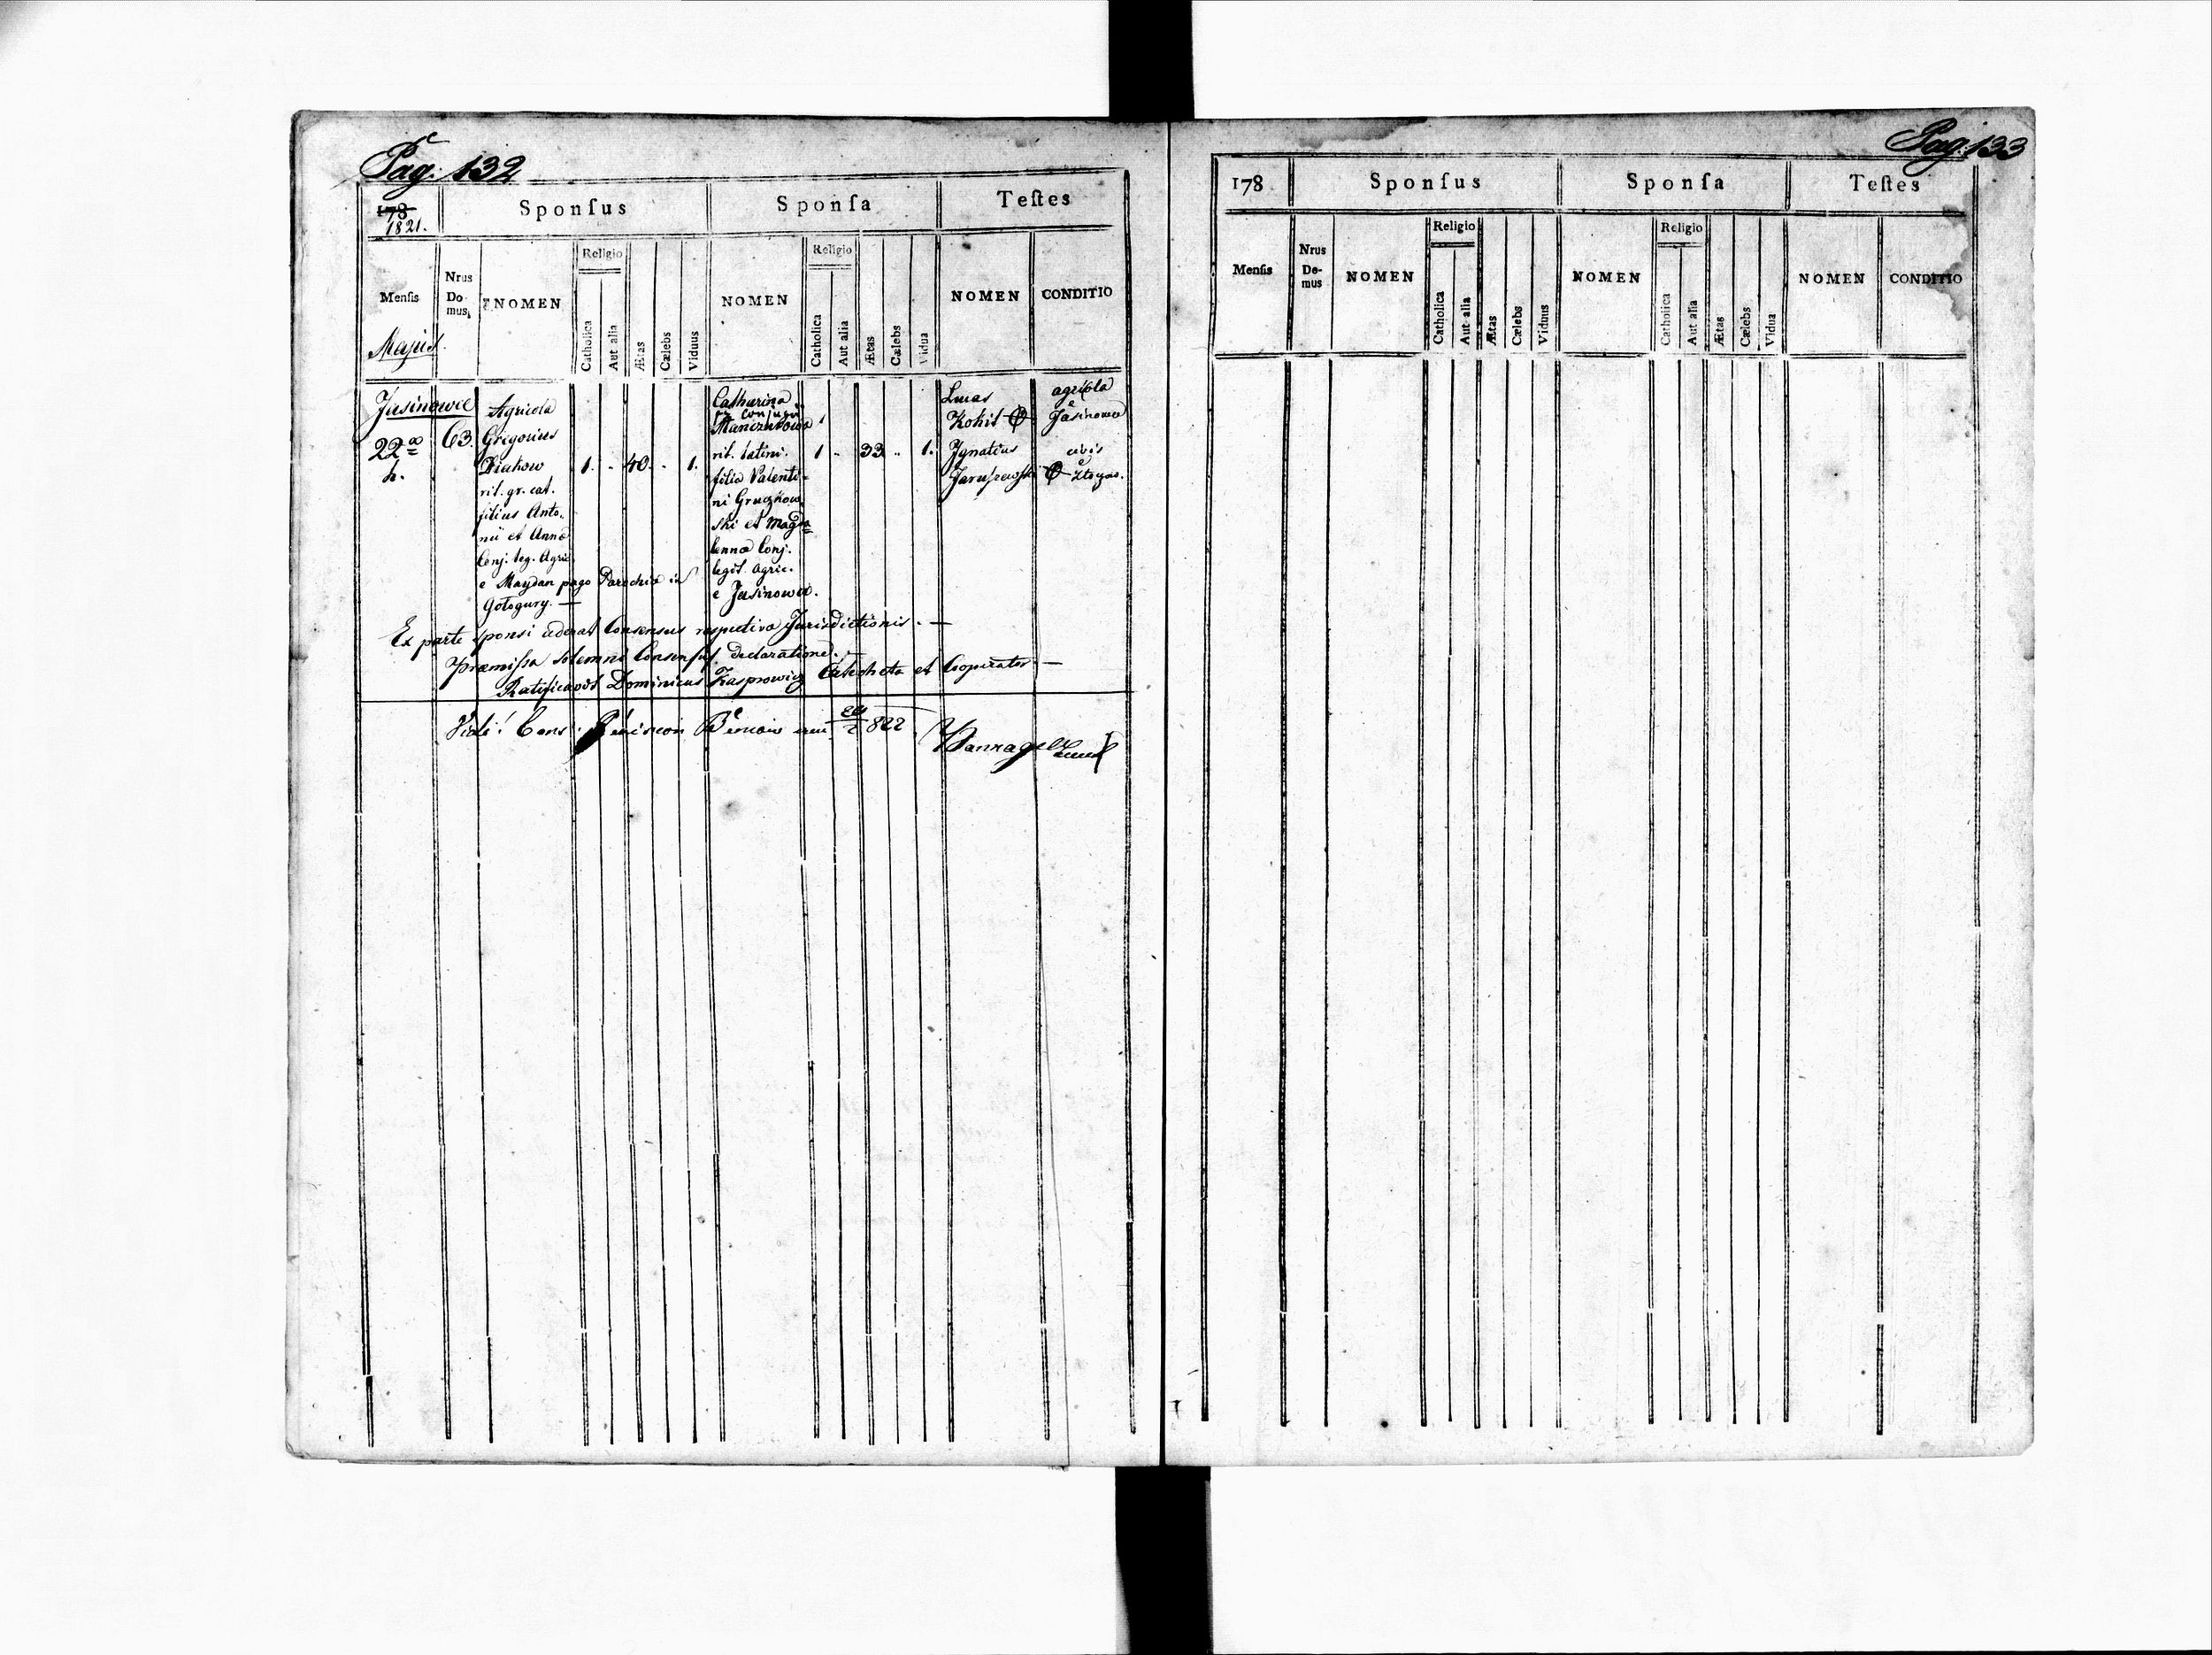 Pag. 132
178
1821.
Sponſus
Sponſa
Teſtes
Menſis
Majus.
Nrus
Do-
mus
NOMEN
Religio
Catholica
Aut alia
Ætas
Cælebs
Viduus
NOMEN
Religio
Catholica
Aut alia
Ætas
Cælebs
Vidua
NOMEN
CONDITIO
Jasinowce
22
h.
63.
Agricola
Gregorius
Diakow
rit. gr. cat.
filius Anto-
nii et Anna
Conj. leg. Agric.
e Maydan pago Parochia in
Gołogury. —
1. . 40. . 1.
Catharina
ex conjugi
rit. latini.
filia Valenti-
ni
ski et Magda
lenna Conj.
legit. Agric.
e Jasinowce.
1 . 33 . 1.
Lucas
Kokit
Ignatius
agricola
e
Jasinowce
civis
e
Ex parte sponsi aderat Consensus respectiva Jurisdictionis. —
Præmissa solemni Consensus declaratione. —
Ratificavit Dominicus Kasprowicz Catecheta et Cooperator. —
Vidi!
822
Pag. 133
178
Sponſus
Sponſa
Teſtes
Menſis
Nrus
De-
mus
NOMEN
Religio
Catholica
Aut alia
Ætas
Cælebs
Viduus
NOMEN
Religio
Catholica
Aut alia
Ætas
Cælebs
Vidua
NOMEN
CONDITIO